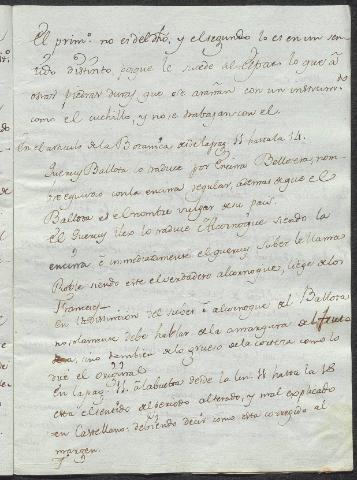 El primº. no es del dho, y el segundo lo es en un sen
tido distinto, porque le sucede al Espato lo que à
otras piedras duras, que se arañan con un instrumto
como el cuchillo, y no se trabajan con el.
En el articulo de la Botanica desde la pag. 11 hasta la 14.
Quercus Ballota lo traduce por Encina Bellotera, nom-
bre equivoco con la encina regular, ademas de que el
Ballota es el nombre vulgar de su pais.
El Quercus Ilex lo traduce Alcornoque siendo la
encina è inmediatamente el quercus Suber le llama
Roble siendo este el verdadero alcornoque, liege de los
Franceses
En la distincion del suber ò alcornoque al Ballota
no solamente debe hablar de la amargura del fruto
sino tambien de lo grueso de la corteza como lo
dice el original
En la pag. 11. à la buelta desde la lin. 11 hasta la 18
esta el sentido del periodo alterado, y mal explicado
en Castellano: debiendo decir como esta corregido al
margen.